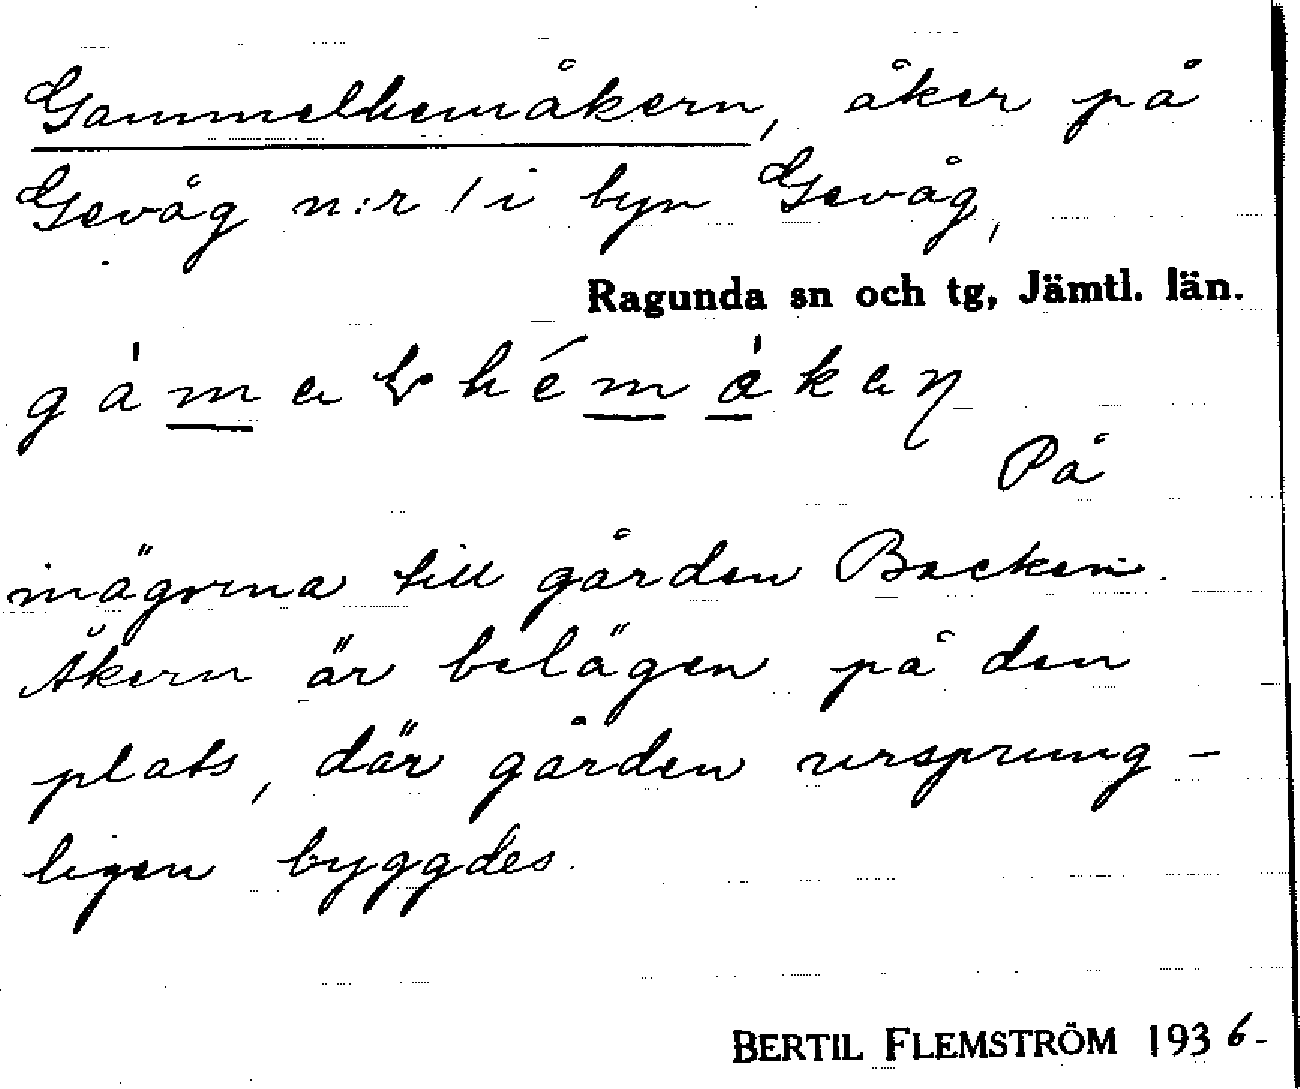 Gammelhemåkern, åker på
Gevåg n:r 1 i byn Gevåg,
Ragunda sn och tg, Jämtl. län.
På
inägorna till gården Backen.
Åkern är belägen på den
plats, där gården ursprung-
ligen byggdes.
BERTIL FLEMSTRÖM 1936